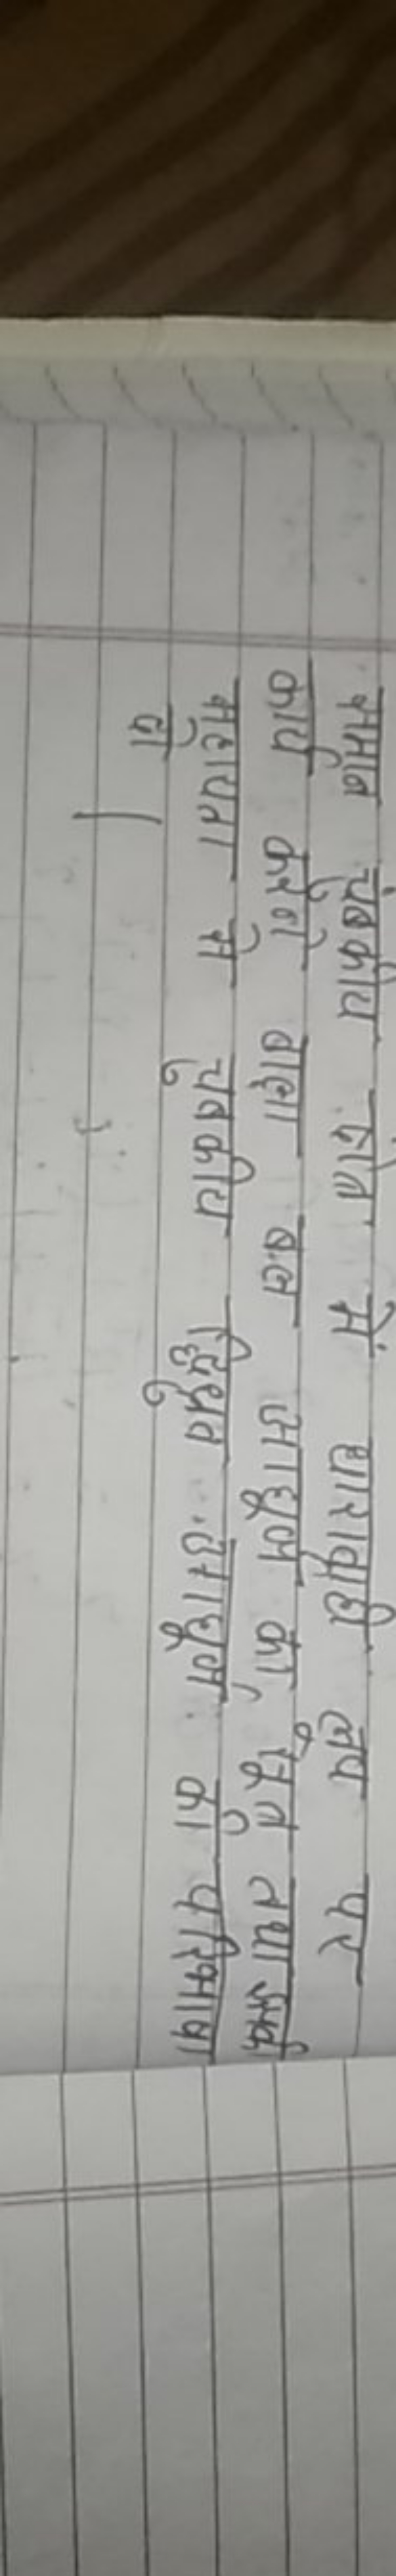 समान चुंबकीय क्षेत्र में धारावाही लूप पर
कार्य करने वाला बल आघूर्ण का सूत्र तथा इसकी
सहायता से चुंबकीय द्विध्रुव आघूर्ण का परिभाषा
दो |